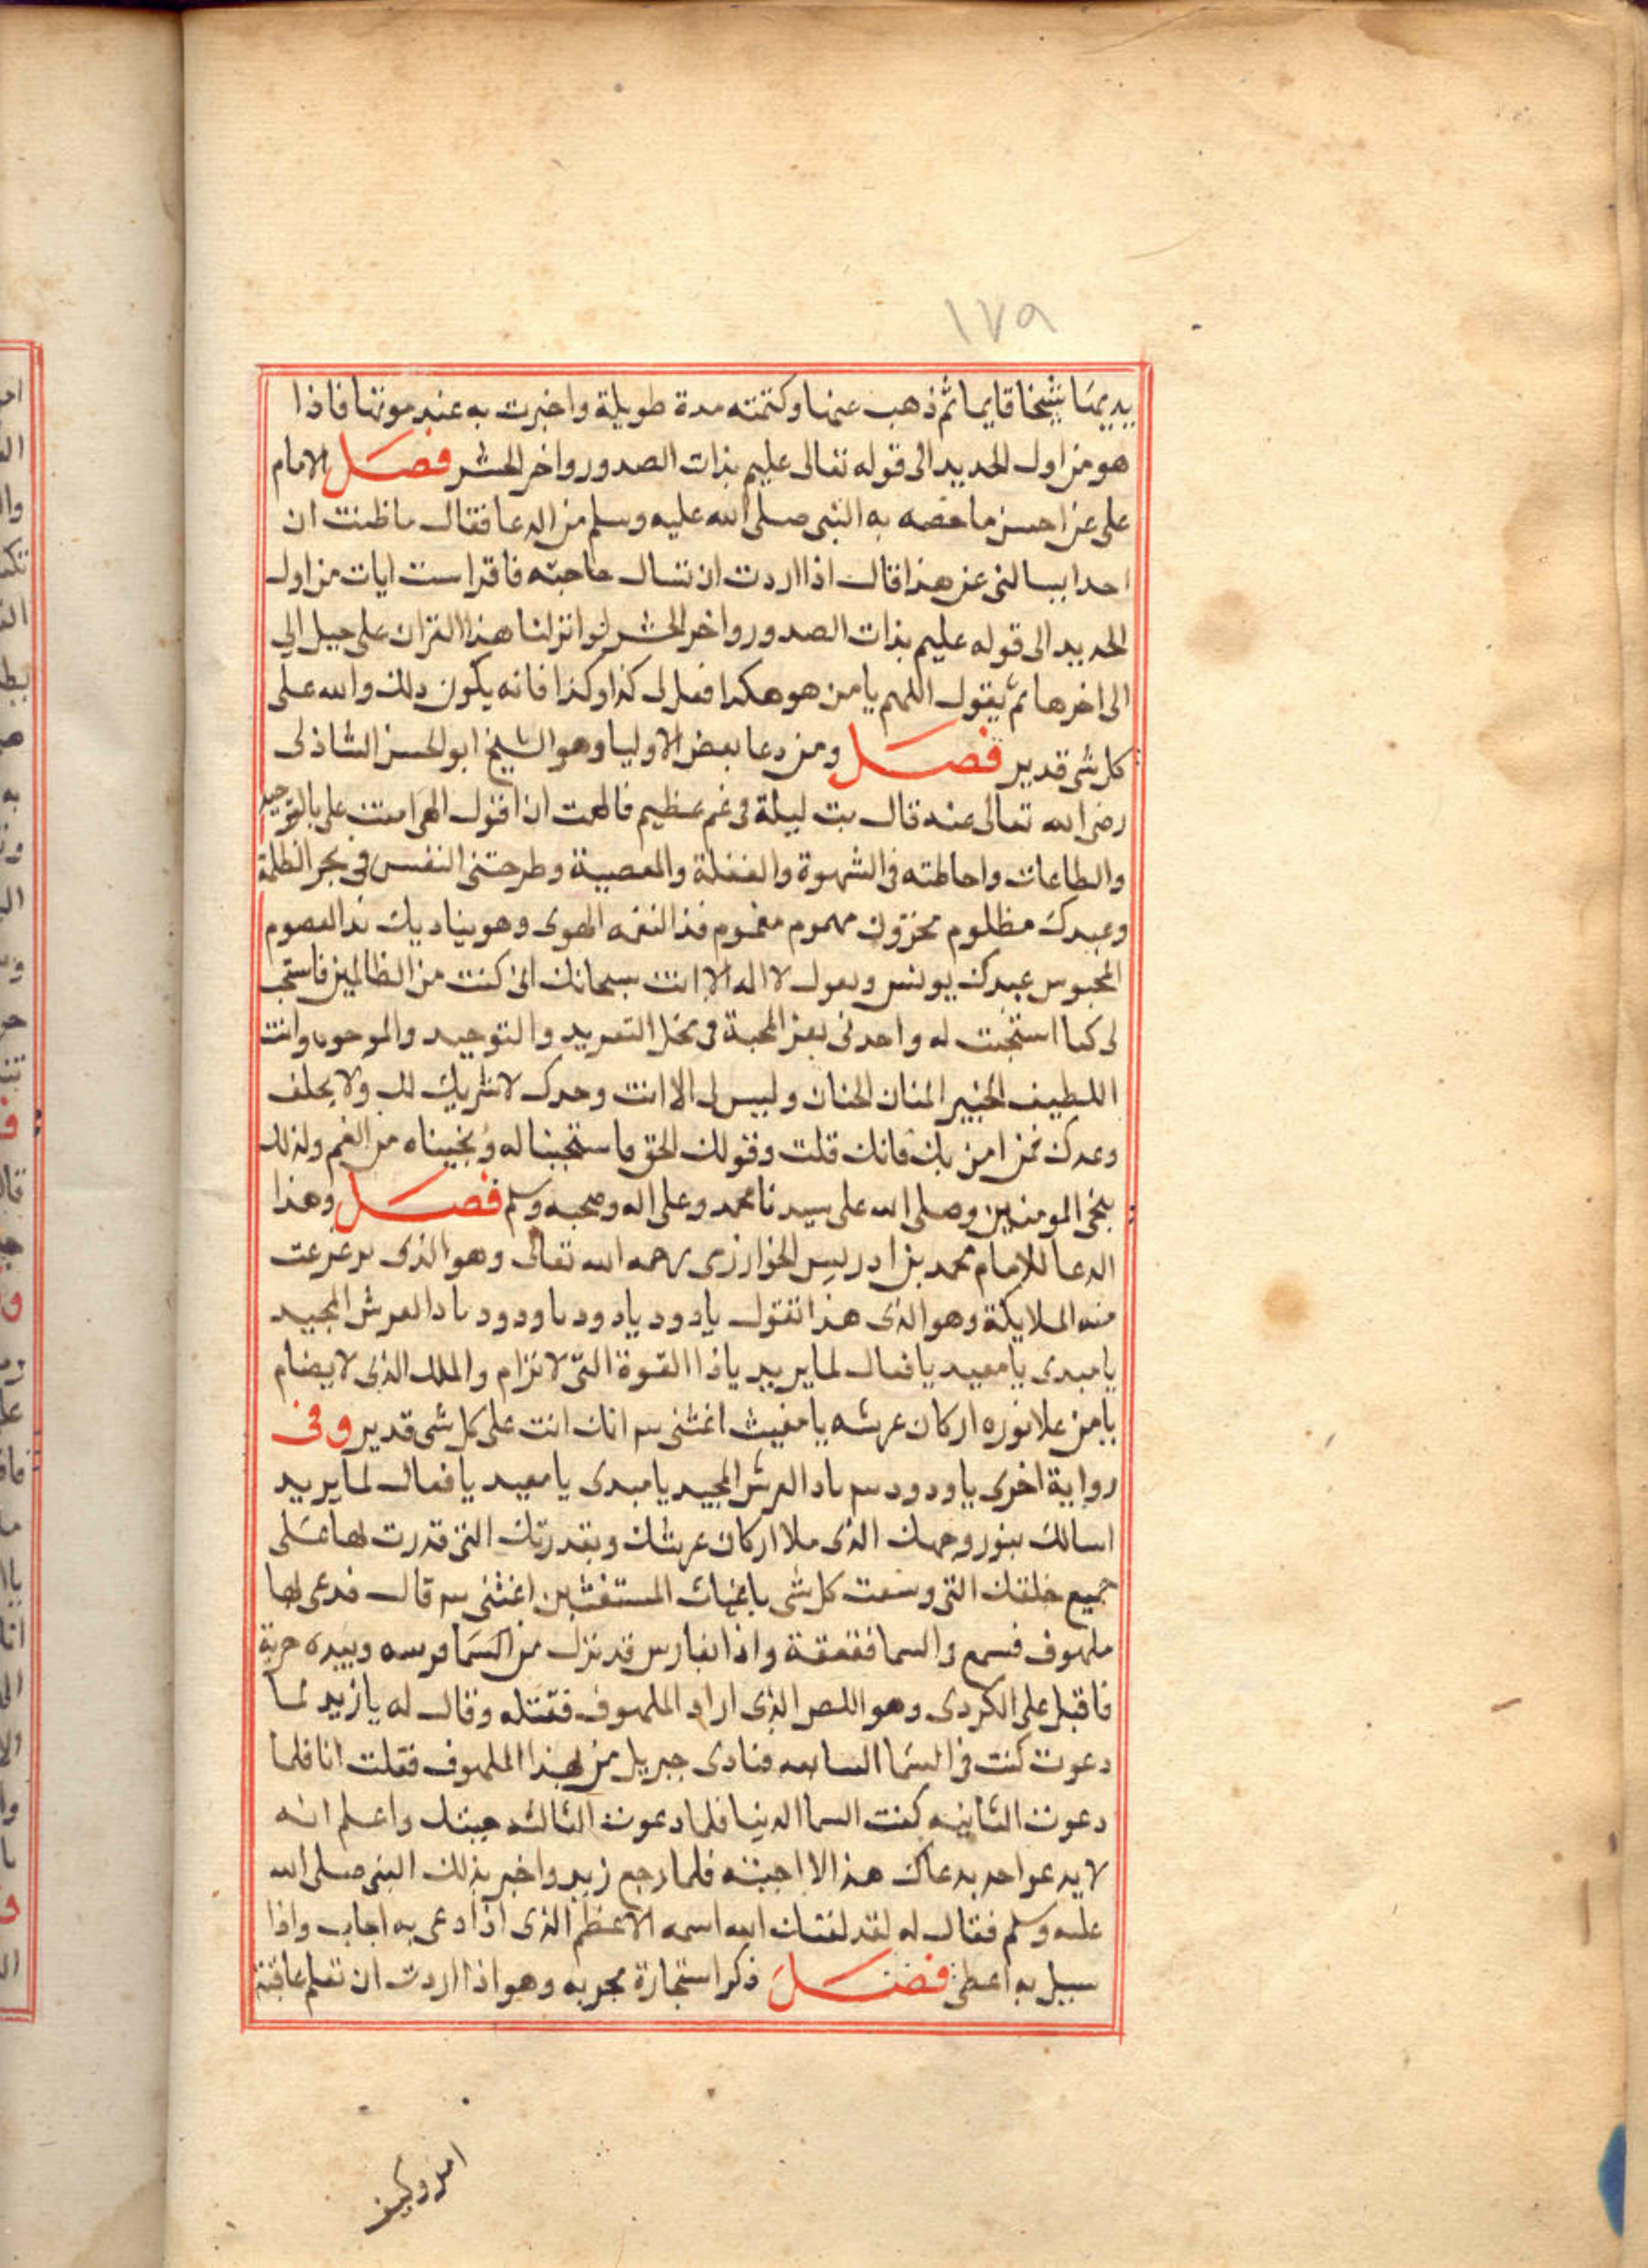 ١٧٩
شيخا قايما ثم ذهب عنها وكتمته مدة طويلة واخبرت به عند موتها فاذا
هو من اول الحديد الى قوله تعالى عليم بذات الصدور واخر الحشر فصل الامام
على عن احسن ما خصه به النبى صلى الله عليه وسلم من الدعا فقال ما ظننت ان
احدا يسالنى عن هذا قال اذا اردت ان تسال حاجته فاقرا ست ايات من اول
الحديد الى قوله عليم بذات الصدور واخر الحشر لو انزلنا هذا القران على جبل الى
الى اخرها ثم يقول اللهم يا من هو هكذا افعل لى كذا وكذا فانه يكون ذلك والله على
كل شى قدير فصل ومن دعا بعض الاوليا وهو الشيخ ابو الحسن الشاذلى
رضى الله تعالى عنه قال بت ليلة فى غم عظيم فالهمت ان اقول الهى مننت على بالتوحيد
والطاعات واحاطته فى الشهوة والغفلة والمعصية وطرحتنى النفس فى بحر الظلمة
وعبدك مظلوم محزون مهموم مغموم قد التقمه الهوى وهو يناديك ندا المعصوم
المحبوس عبدك يونس ويقول لا اله الا انت سبحانك انى كنت من الظالمين فاستجب
لى كما استجبت له وا المحبة فى محل التفريد والتوحيد وانت
اللطيف الخبير المنان الحنان وليس لى الا انت وحدك لا شريك لك ولا يخلف
وعدك فمن امن بك فانك قلت وقولك الحق فاستجبنا له ونجيناه من الغم وكذلك
ننجى المومنين وصلى الله على سيدنا محمد وعلى اله وصحبه وسلم فصل وهذا
الدعا للامام محمد بن ادريس الخوارزى رحمه الله تعالى وهو الذى
منه الملايكة وهو الذى هذا تقول يا دود يا دود يا ودود يا ذا العرش المجيد
يا مبدى يا معيد يا فعال لما يريد يا ذا القوة التى لا ترام والملك الذى لا يضام
يا من علا نوره اركان عرشه يا مغيث اغثنى انك انت على كل شى قدير وفى
رواية اخرى يا ودود يا ذا العرش المجيد يا مبدى يا معيد يا فعال لما يريد
اسالك بنور وجهك الذى ملا اركان عرشك وبقدرتك التى قدرت لها على
جميع خلقك التى وسعت كل شى يا غياث المستغثين اغثنى قال فدعى لها
ملهوف فسمع والسما قعقعة واذا بفارس قد نزل من السما وبيده حربة
فاقبل على الكردى وهو اللص الذى اراد الملهوف فقتله وقال له يا زيد لما
دعوت كنت فى السما السابعه فنادى جبريل من لهذا الملهوف فقلت انا فلما
دعوت الثانيه كنت السما الدنيا فلما دعوت الثالثه جيتك واعلم انه
لا يدعو احد بدعاك هذا الا اجبته فلما رجع زيد واخبر بذلك النبى صلى الله
عليه وسلم فقال له لقد لقنك الله اسمه الاعظم الذى اذا دعى به اجاب واذا
سيل به اعطى فصل ذكر استخارة مجربه وهو اذا اردت ان تعلم عاقبة
امر وكيف